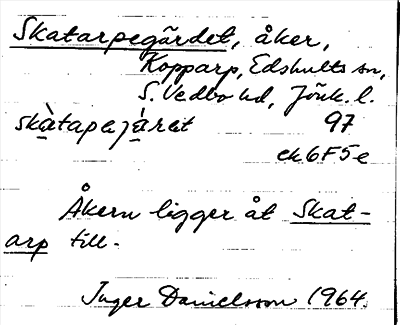 Skatarpegärdet, åker,
Kopparp, Edshults sn,
S. Vedbo hd, Jönk. l.
skàtapejáret 97
ek 6F5e
Åkern ligger åt Skat-
arp till.
Inger Danielsson 1964.